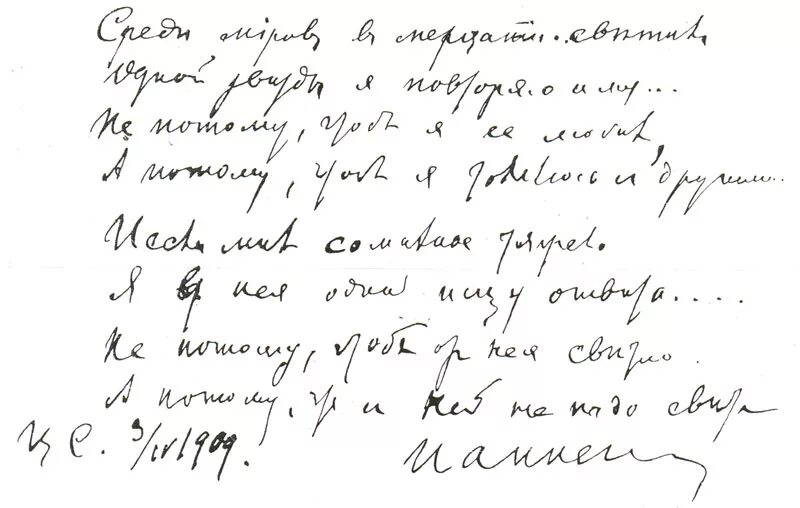 Среди мiров, в мерцании светил
Одной звѣзды я повторяю имя...
Не потому, чтобъ я ее любил,
А потому, что я томлюсь с другими...
И если мнѣ сомнѣнье тяжело
Я у нея одной ищу отвѣта....
Не потому, чтобъ от нея свѣтло.
А потому, что с ней не надо свѣта
Ц С. 3/IV 1909.
И Анненский